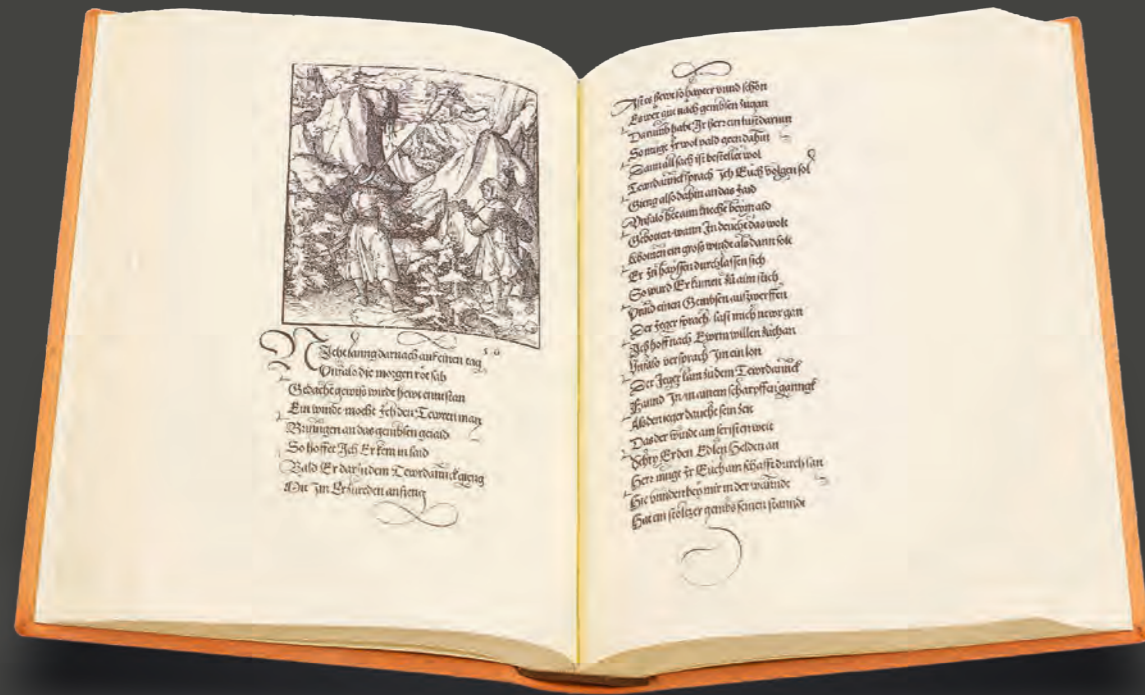 Nicht lanng darnach auf einen tag
Unfalo die morgen röt sah
Gedacht gewiß wirdt hewt enntstan
Ein windt mocht Ich den Tewren man
Bringen an das gembsen geiaid
So hoffet Ich Er kem in laid
Bald Er dar zu dem Tewrdannck gieng
Mit Im Er zureden anfieng
Ist es hewt so hayter vnnd schön
Es wer gut nach gembsen zugan
Darumb habt Ir Herr ein lust darzun
So muget Ir wol bald geen dahin
Dann all sach ist bestellet wol
Tewrdannck sprach Ich Euch volgen sol
Gieng also dahin an das Iaid
Unfalo het aim knecht
Gebotten wann In deucht das wolt
komen ein groß windt alsdann solt
Er In hayssen durchlassen sich
So wurd Er kumen zu aim stich
Vnnd einen Gembsen außzwerffen
Der Jeger sprach last mich newr gan
Ich hoff nach Ewrm willen
Unfalo versprach Im ein lon
Der Jeger kam zu dem Tewrdannck
Faund In in ainem scharpffen ganngk
Als den jeger daucht sein zeit
Das der windt am weit
Schry Er den Edlen Helden an
Herr muget Ir Euch am schafft durch lan
Hie vnnden bey mir in der wannde
Hat ein stoltzer gembs seinen stannde